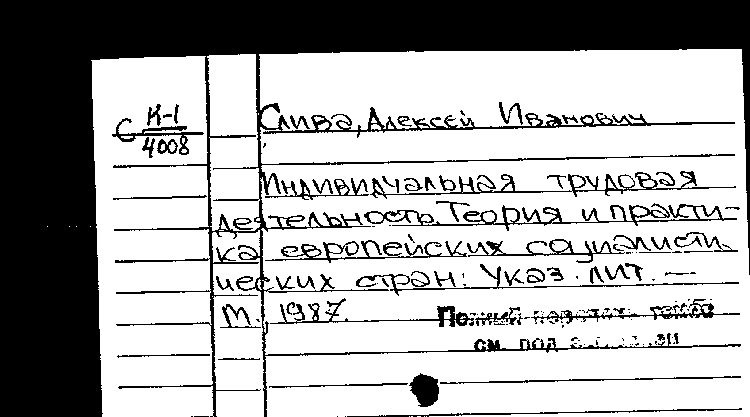 С К-1
4008
Слива, Алексей Иванович
Индивидуальная трудовая
деятельность. Теория и практи-
ка европейских социалисти-
ческих стран: Указ. лит. —
М. 1987.
Полный
см. под